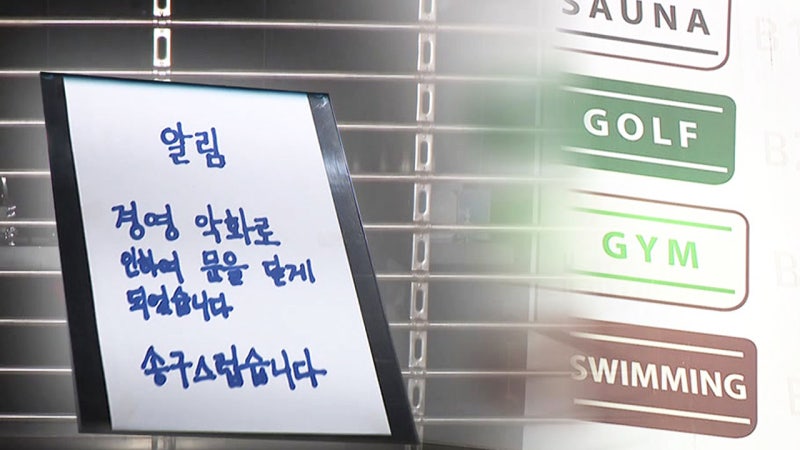 알림
경영 악화로
인하여 문을 닫게
되었습니다
송구스럽습니다
SAUNA
GOLF
GYM
SWIMMING